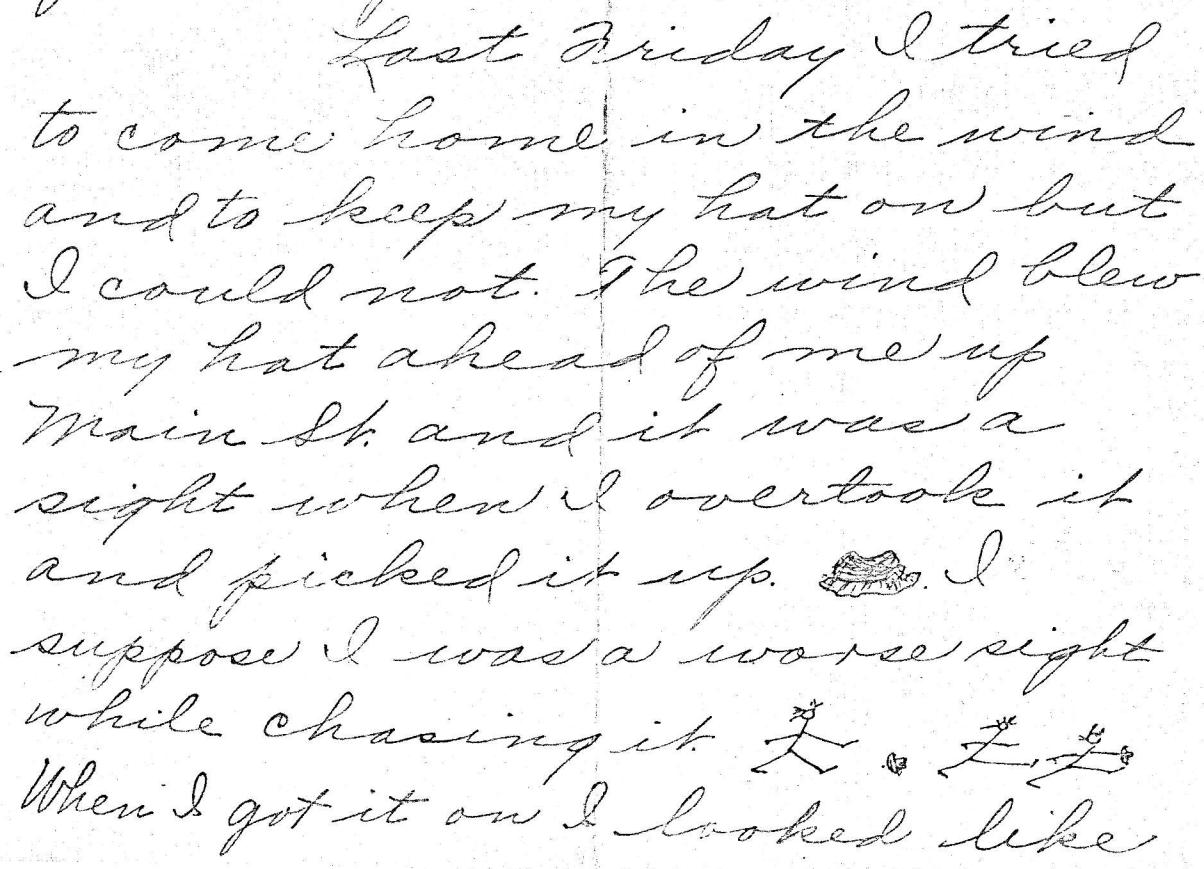 Last Friday I tried
to come home in the wind
and to keep my hat on but
I could not. The wind blew
my hat ahead of me up
Main St. and it was a
sight when I overtook it
and picked it up. . I
suppose I was a worse sight
while chasing it.
When I got it on I looked like